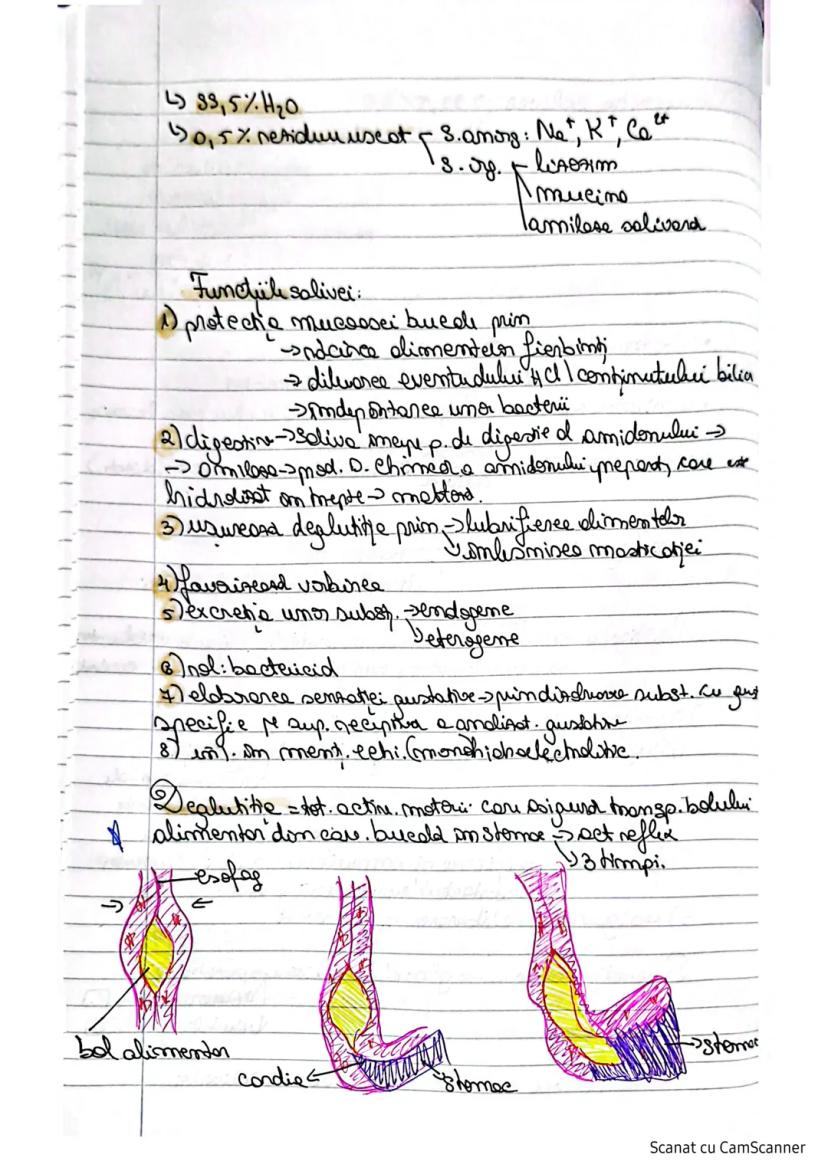 ↳ 99,5% H₂O
↳ 0,5% reziduu uscat
S. anorg: Na⁺, K⁺, Ca²⁺
S. org.
lizozim
mucina
amilaza salivară
Funcțiile salivei:
1) protecția mucoasei bucale prin
→ răcirea alimentelor fierbinți
→ diluarea eventualului HCl \ conținutului bilia
→ îndepărtarea unor bacterii
2) digestivă → Saliva încep. p. de digestie al amidonului →
→ amilaza → prod. D. chimică a amidonului preparat, care este
hidrolizat în trepte → maltoză.
3) ușurează deglutiție prin → lubrifierea alimentelor
↘ înlesnirea masticației
4) favorizează vorbirea
5) excreția unor subst. → endogene
↘ eterogene
6) rol: bactericid
7) elaborarea senzației gustative → prin dizolvarea subst. cu gust
specific pe sup. receptivă a analizat. gustativ
8) în menț. echi.
2 Deglutiție = tot. activ. motorii care asigură transp. bolului
alimentar din cav. bucală în stomac → act reflex
↘ 3 timpi.
esofag
bol alimentar
cardia
stomac
stomac
Scanat cu CamScanner